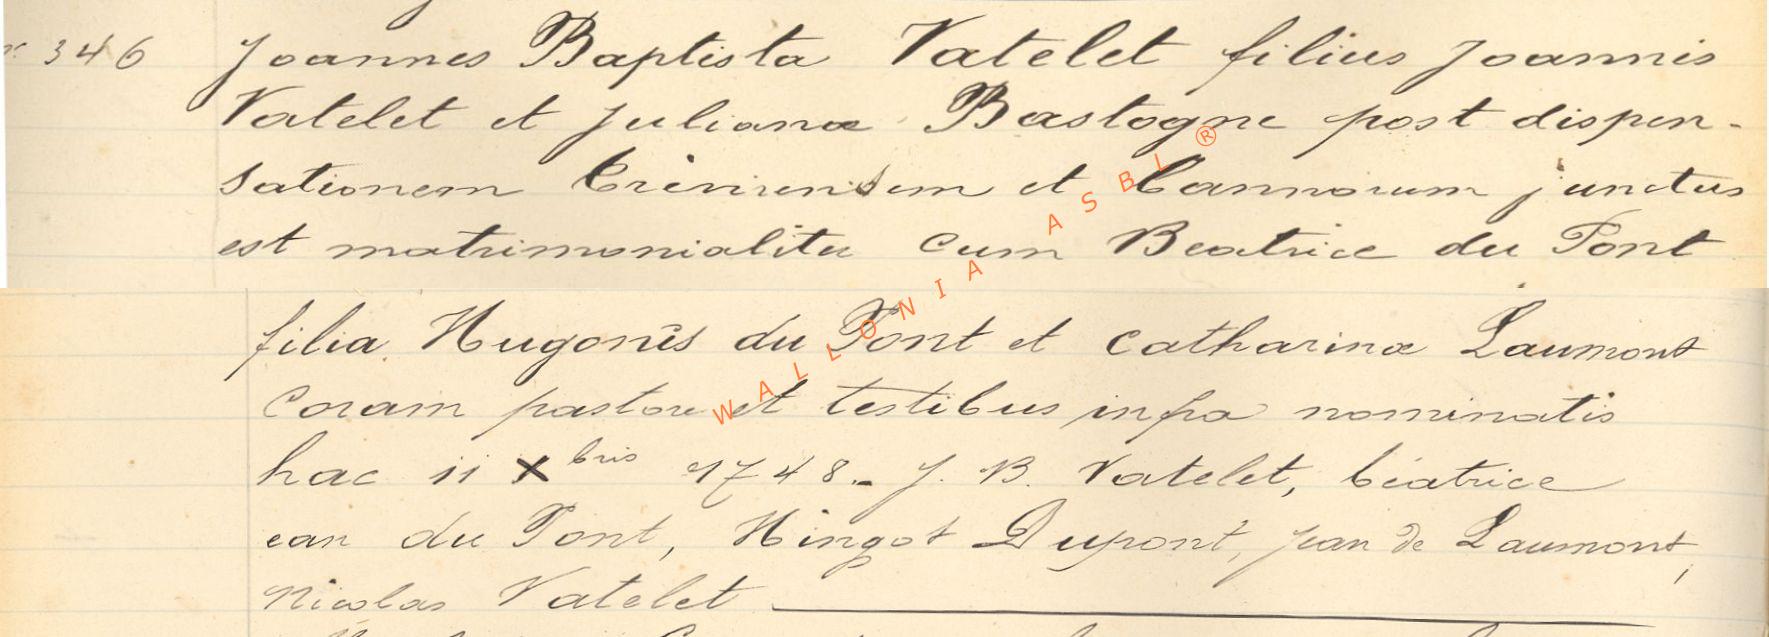 n° 346 Joannes Baptista Vatelet filius Joannis
Vatelet et Julianæ Bastogne post dispen-
sationem Trevirensem et Bannorum junctus
est matrimonialiter cum Beatrice du Pont
filia Hugonis du Pont et Catharinæ Laumont
Coram pastore et testibus infra nominatis
hac 11 Xbris 1748._ J. B. Vatelet, béatrice
ean du Pont, Hingot Dupont, jean de Laumont,
Nicolas Vatelet
WALLONIA ASBL ®